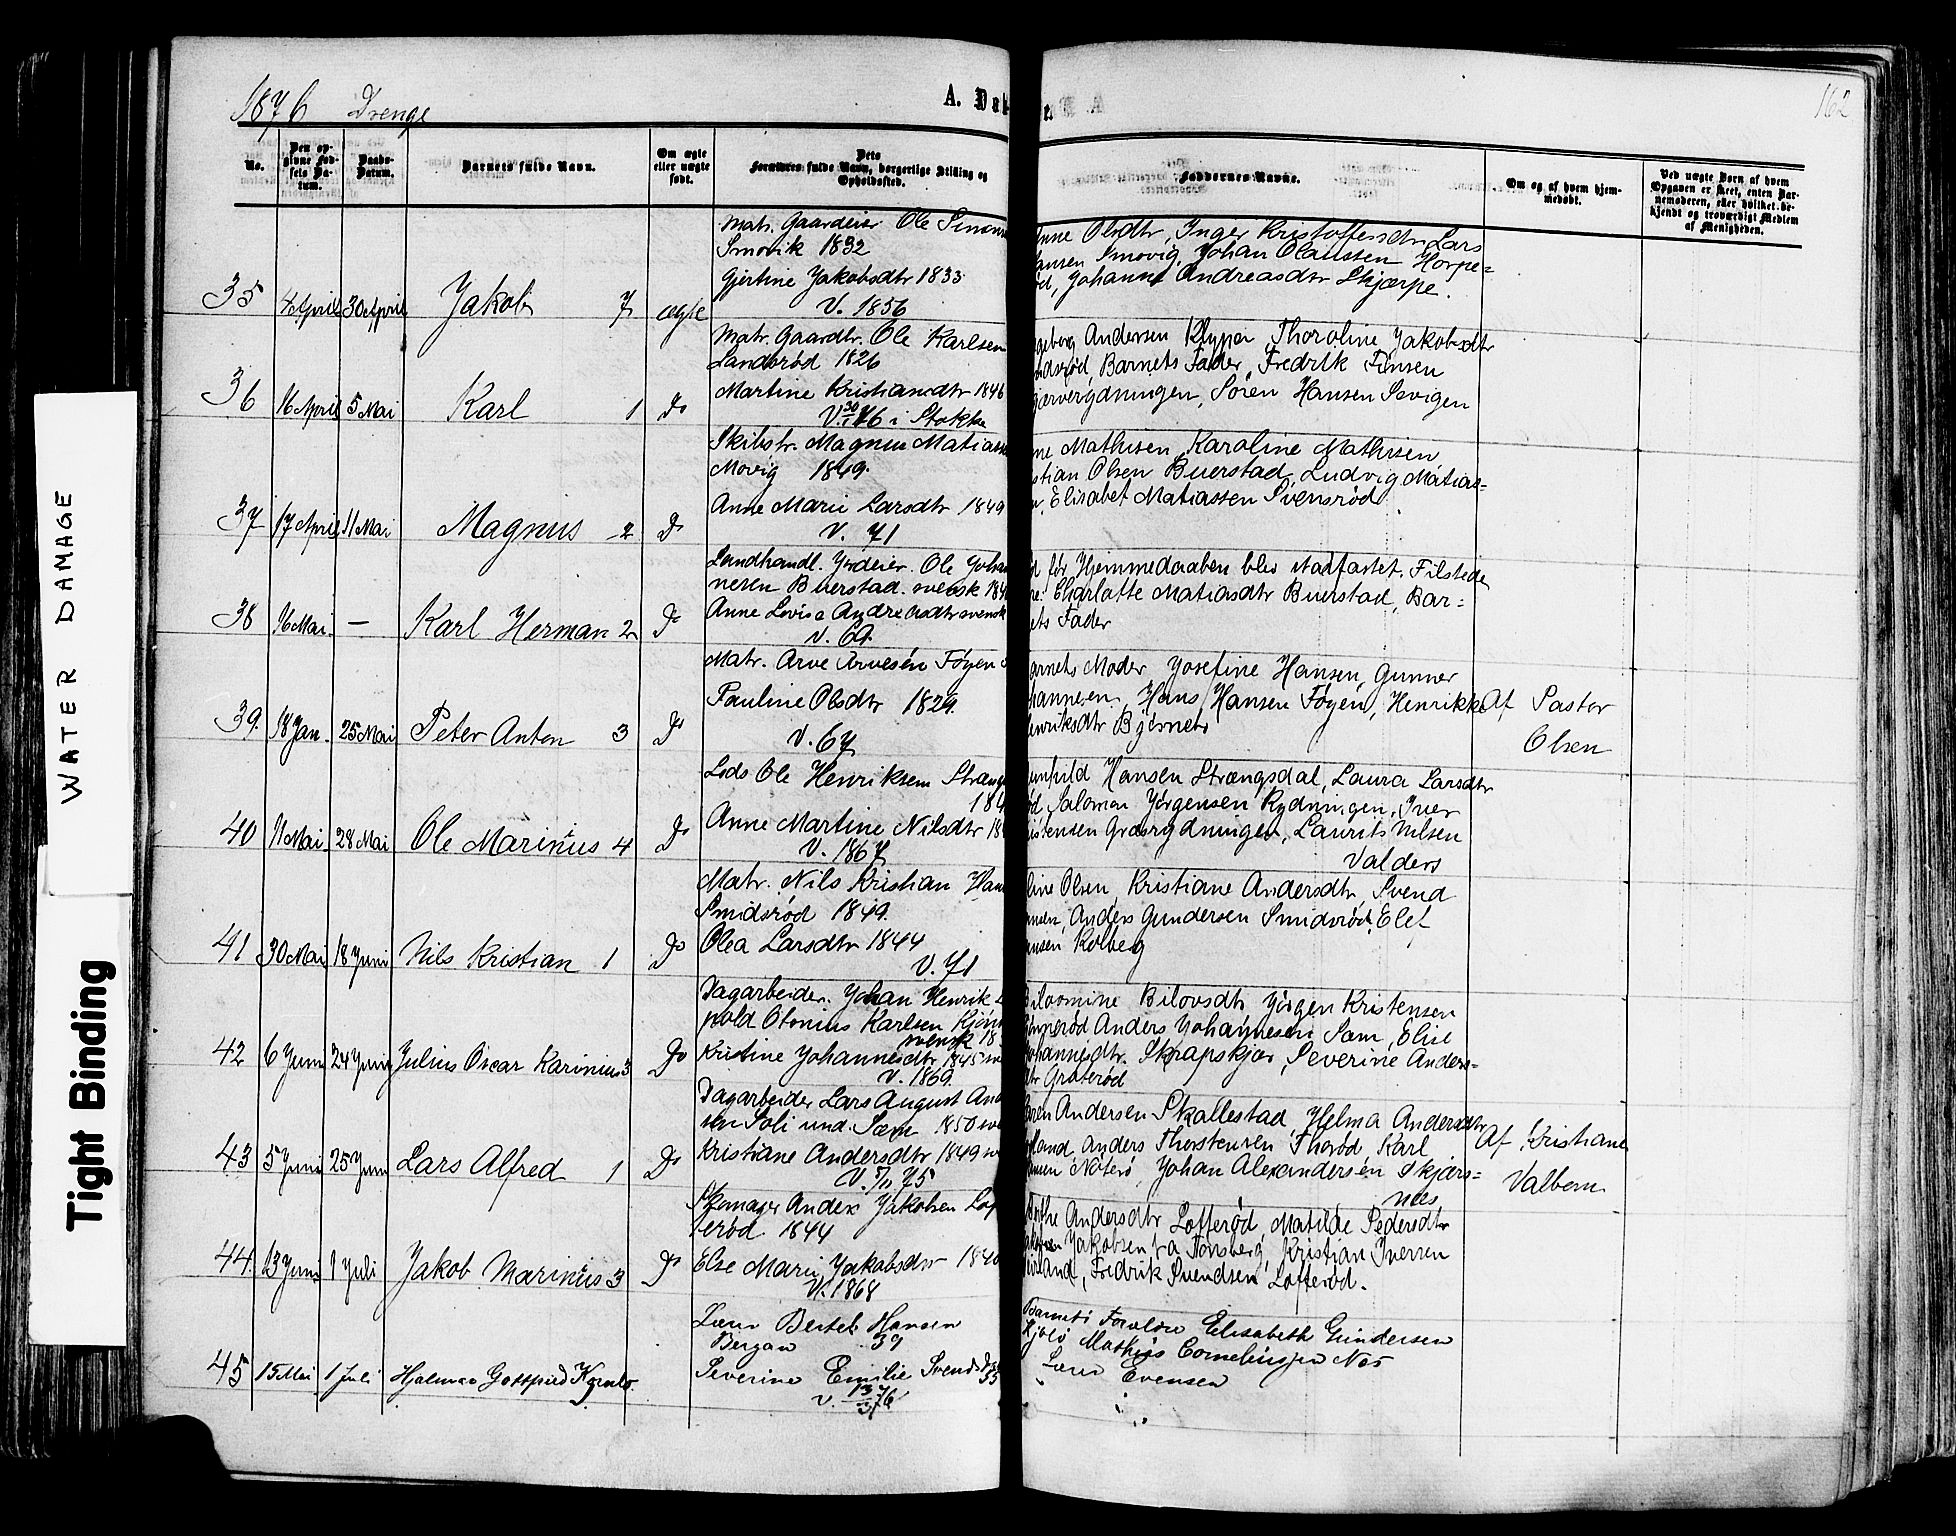 1876 Drenge
A. Døb
162
No.
Den op-
givne Fød-
sels Da-
tum.
Daabs-
Datum.
Barnets fulde Navn.
Om ægte
eller uægte
født.
Dets
Forældres fulde Navn, borgerlige Stilling og
Opholdssted.
Faddernes Navne.
Om og af hvem hjem-
medøbt.
Ved uægte Børn af hvem
Opgaven er skeet, enten Bar-
nemoderen, eller hvilket be-
kjendt og troværdigt Medlem
af Menigheden.
35 4 April 30 April Jakob 7 ægte
Matr. Gaardeier Ole Simons
Smovik 1832
Gjertine Jakobsdtr 1833
V. 1856
Anne Olsdtr, Inger Kristoffersdtr Lars
Hansen Smovig, Johan Olaussen Horpe=
ød, Johanne Andreasdtr Skjærpe.
36 16 April 5 Mai Karl 1 Do
Matr. Gaardbr. Ole Karlsen
Landsrød 1826
Martine Kristiansdtr 1846
V. 30/1 76 i Stokke
Andersen Klyper Thoroline Jakobsdtr
Barnets Fader, Fredrik Finsen
Søren Hansen Sevigen
37 17 April 11 Mai Magnus 2 Do
Skibstr. Magnus Matiass
Movig 1849.
Anne Marie Larsdtr 1849
V. 71
ne Mathisen, Karoline Mathisen
stian Olsen Buerstad, Ludvig Matias=
n, Elisabet Matiassen Svensrød.
38 16 Mai — Karl Herman 2 Do
Landhandl. Jordeier. Ole Johan
nesen Buerstad. svensk 184
Anne Lovise Andreasdtr svensk
V. 69.
d før Hjemmedaaben blev stadfæstet. Tilstede
re: Charlotte Matiasdtr Buerstad, Bar=
ets Fader
39. 18 Jan. 25 Mai Peter Anton 3 Do
Matr. Arve Arvesen Føyen
Pauline Olsdtr 1829.
V. 67
arnets Moder Josefine Hansen, Gunner
hannesen, Hans Hansen Føyen, Henrikke
enriksdtr Bjernes
Af Pastor
Olsen
40 11 Mai 28 Mai Ole Marinius 4 Do
Lods Ole Henriksen Stræng
184
Anne Martine Nilsdtr 18
V. 1867
unhild Hansen Strængsdal, Laura Larsdtr
ød Salomon Jørgensen Rydningen, Iver
istensen Græsrydningen, Laurits Nilsen
Valders
41 30 Mai 18 Juni Nils Kristian 1 Do
Matr. Nils Kristian Han
Smidsrød 1849.
Olea Larsdtr 1844
V. 71
line Olsen, Kristiane Andersdtr, Svend
Anders Gundersen Smidsrød, Elef
ansen Kolberg
42 6 Juni 24 Juni Julius Oscar Karinius 3 Do
Dagarbeider. Johan Henrik L
pold Otonius Karlsen Kjøn
svensk 18
Kristine Johannesdtr 1845 sv
V. 1869.
Bilovsdtr Jørgen Kristensen
Anders Johannesen Sæm, Elise
Johannesdtr. Skrapskjær, Severine Anders=
dtr Graterød
43 5 Juni 25 Juni Lars Alfred 1 Do
Dagarbeider Lars August And
sen Soli und. Sæm 1850 sv
Kristiane Andersdtr 1849 sv
V. 5/11 75
Andersen Skallestad, Helma Andersdtr
land, Anders Thorstensen Thorød, Karl
nsen Nøterø, Johan Alexandersen Skjærs=
næs
Af Kristiane
Valbem
44 13 Juni 1 Juli Jakob Marinius 3 Do
Skomager Anders Jakobsen Lof
terød. 1844
Else Marie Jakobsdtr 1840
V. 1868
Andersdtr Lofterød, Matilde Pedersdtr
Jakobsen fra Tønsberg, Kristian Iversen
land, Fredrik Svendsen Lofterød.
45 15 Mai 1 Juli Hjalmar Gottfried
Lærer Bertel Hansen
Bergan 37
Severine Emilie Svendsd 35
V. 13/3 76
Barnets Forældre Elisabeth Gundersen
Mathias Corneliussen Nes
Lærer Evensen
WATER DAMAGE
Tight Binding